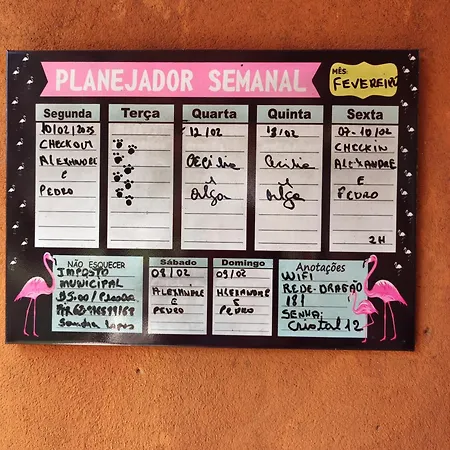 PLANEJADOR SEMANAL
MÊS:
FEVEREIRO
Segunda
10/02/2025
CHECKOUT
ALEXANDRE
E
PEDRO
Terça
Quarta
12/02
CECÍLIA
Olga
Quinta
13/02
Cecilia
Olga
Sexta
07-10/02
CHECKIN
ALEXANDRE
E
PEDRO
2H
NÃO ESQUECER
IMPOSTO
MUNICIPAL
Sandra
Sábado
08/02
ALEXANDRE
E
PEDRO
Domingo
09/02
ALEXANDRE
E
PEDRO
Anotações
WIFI
REDE-DRAGÃO
181
SENHA:
Cristal12